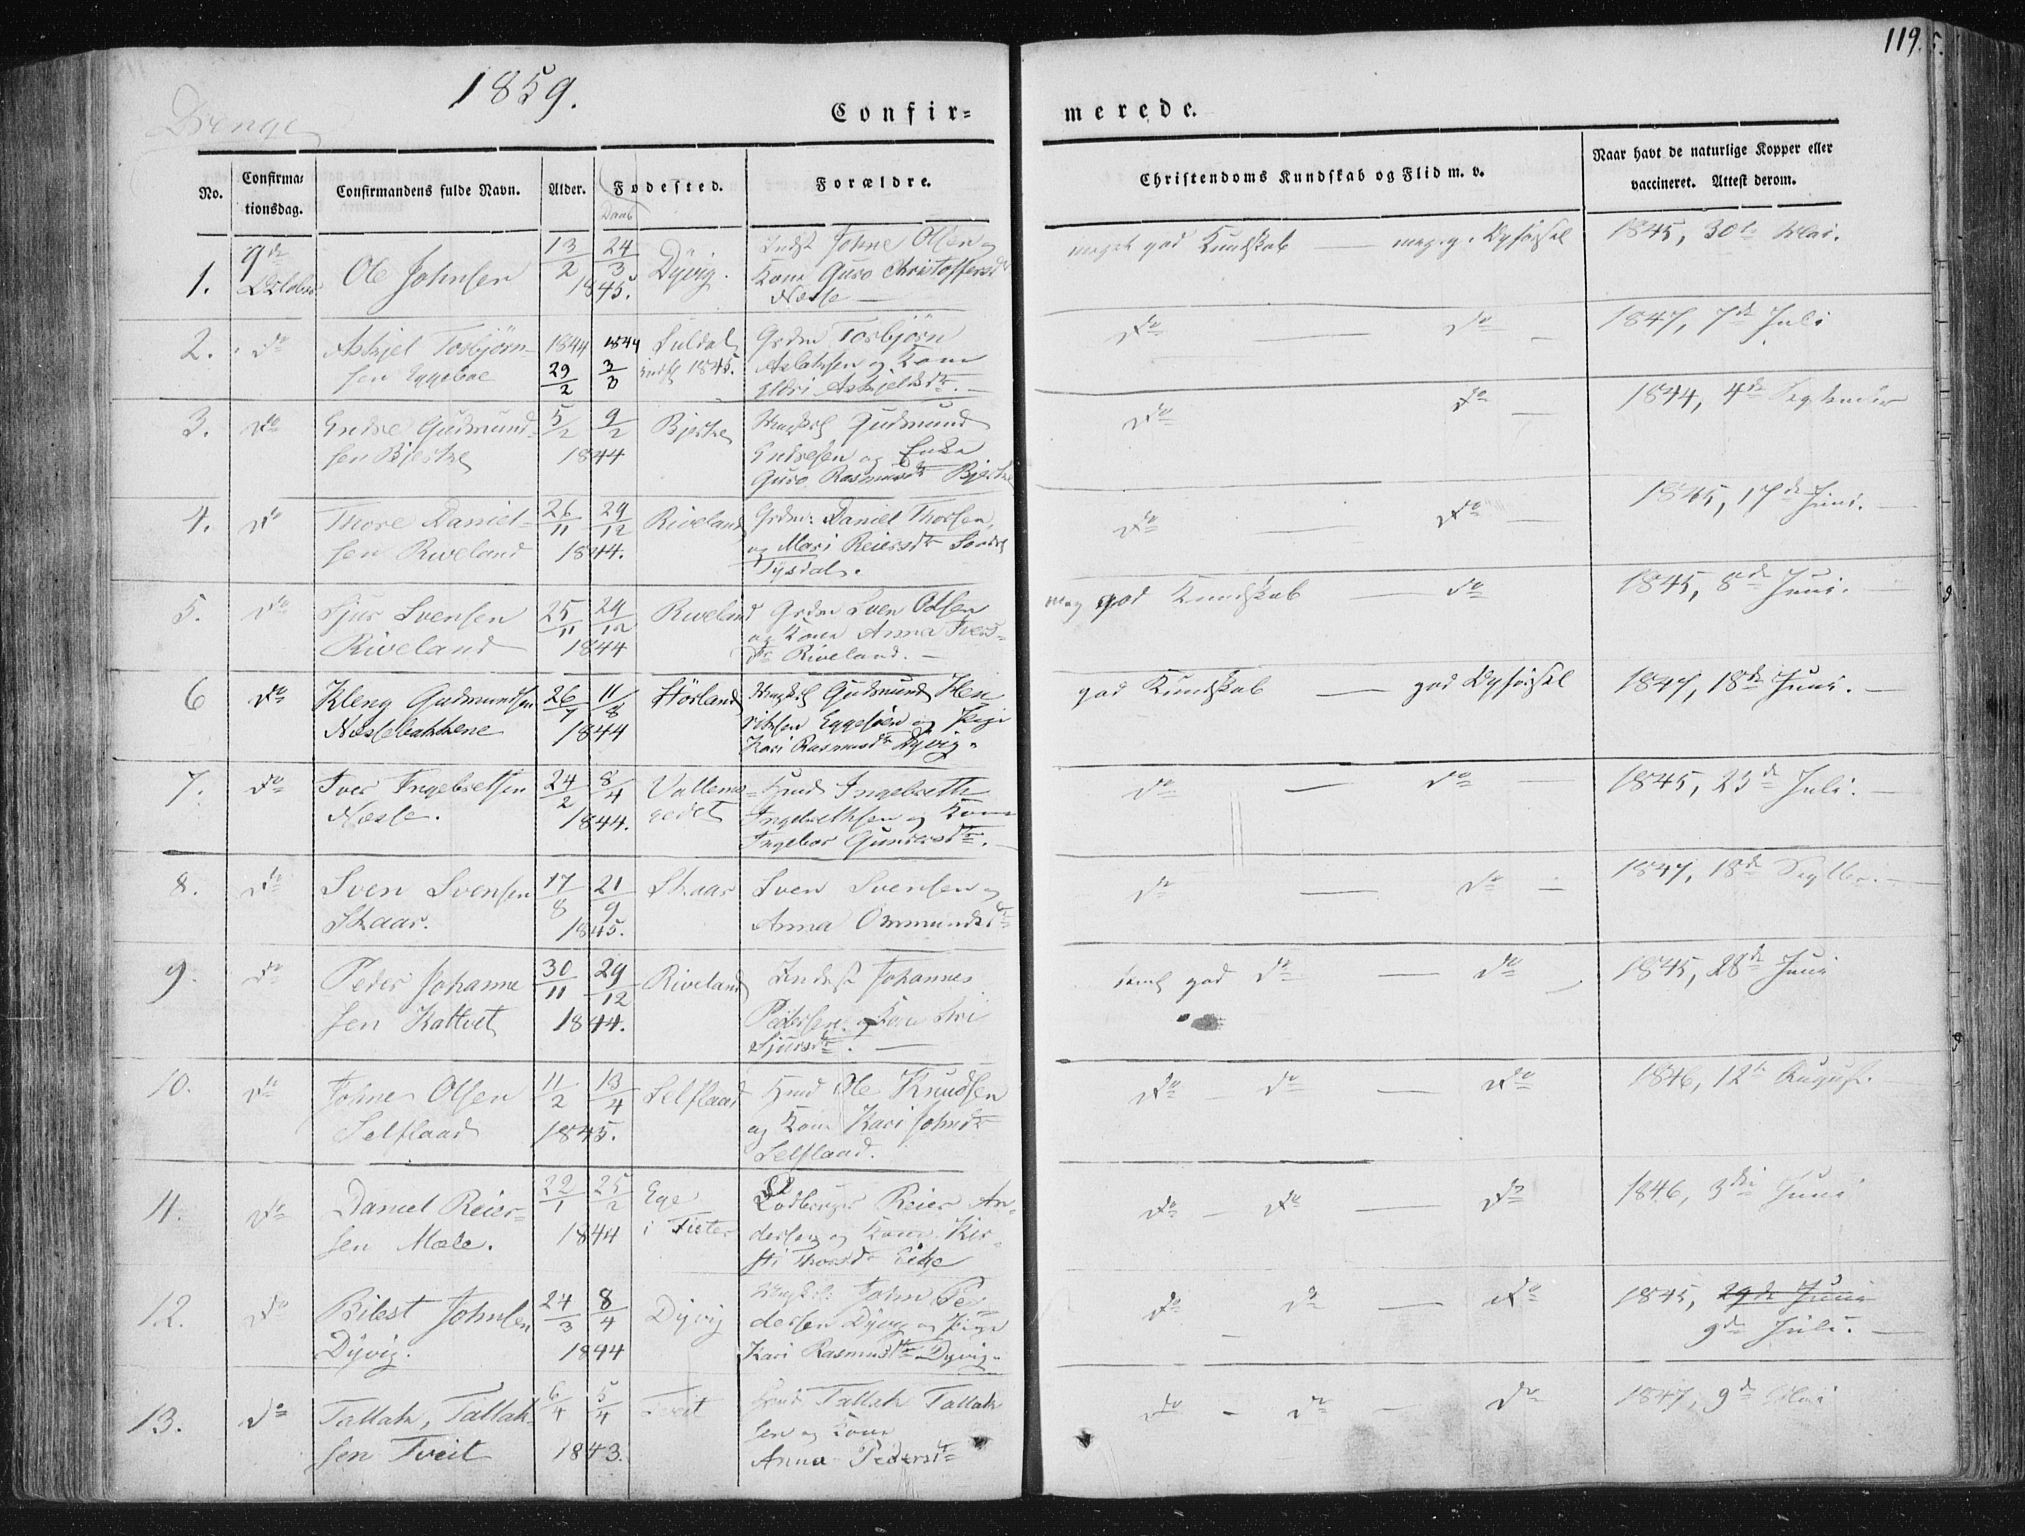 119.
1859.
Drenge
Confir-
merede.
No.
Confirma-
tionsdag.
Confirmandens fulde Navn.
Alder.
Fødested.
Forældre.
Christendoms Kundskab og Flid m. v.
Naar havt de naturlige Kopper eller
vaccineret. Attest derom.
Daab
1.
9de
Ole Johnsen
13/2 24/3
1845.
Dyvig.
Indst Johne Olsen og
Kone Guro Christoffersdr
Næsse
meget god Kundskab — meg. g. Opførsel
1845, 30te Mai.
2. do
Askjel Torbjørn-
sen Eggeboe
1844 1844
29/2 3/3
Suldal
indfl 1845.
Grdm Torbjørn
Aslaksen og Kone
Askjelsdr.
do — do
1847, 7de Juli
3. do
Endre Gudmund-
sen Bjerke
5/2 9/2
1844
Bjerke
Gudmund
Endresen og Enke
Guro Rasmusdr Bjerke
do do
1844, 4de September
4. do
Thore Daniel-
sen Riveland
26/11 29/12
1844.
Riveland
Grdm: Daniel Thorsen
og Mari Reiersdr
Tysdal.
do do
1845, 17de Juni.
5. do
Sjur Svensen
Riveland
25/11 29/12
1844
Riveland
Grdm Sven Olsen
og Kone Anna Ivers-
dr Riveland.
meg god Kundskab — do
1845, 8de Juni.
6 do
Kleng Gudmundsen
Næssebakkene
26/7 11/8
1844
Hörland
Gudmund Hen
riksen og Pige
Kari Rasmusdr Dyvig.
god Kundskab — god Opførsel
1847, 18de Juni.
7. do
Iver Ingebretsen
Næsse.
24/2 8/4
1844.
Vallems-
gedet
Hmd Ingebreth
Ingebrethsen og Kone
Ingebor Gundersdr.
do — do
1845, 23de Juli.
8. do
Sven Svensen
Skaar.
17/8 21/9
1845.
Skaar
Sven Svensen og
Anna Ommundsdr
do — do
1847, 18de Septbr.
9. do
Peder Johanne
sen Kattvet
30/11 29/12
1844.
Riveland
Indst Johannes
Pedersen og Kone
Sjursdr.
temt god do — do
1845, 28de Juni
10. do
Johne Olsen
Selflaad
11/2 13/4
1845.
Selflaad
Hmd Ole Knudsen
og Kone Kari Johnsdr
Selflaad.
do — do — do
1846, 12te August.
11. do
Daniel Reier-
sen Mæle.
22/1 25/2
1844
Ege
i Fister
Reier An-
dersen og Kone Kir-
sti Thorsdr Eige
do — do do
1846, 3die Juni
12. do
Bilest Johnsen
Dyvig.
24/3 8/4
1844
Dyvig
John Pe-
dersen Dyvig og Pige
Kari Rasmusdr Dyvig.
do do — do
1845, 29de Juni
9de Juli.
13. do
Tallak, Tallak-
sen Tveit
6/4 5/4
1843.
Tveit
Hmd Tallak Tallak
sen og Kone
Anna Pedersdr
do — do — do
1847, 9de Mai